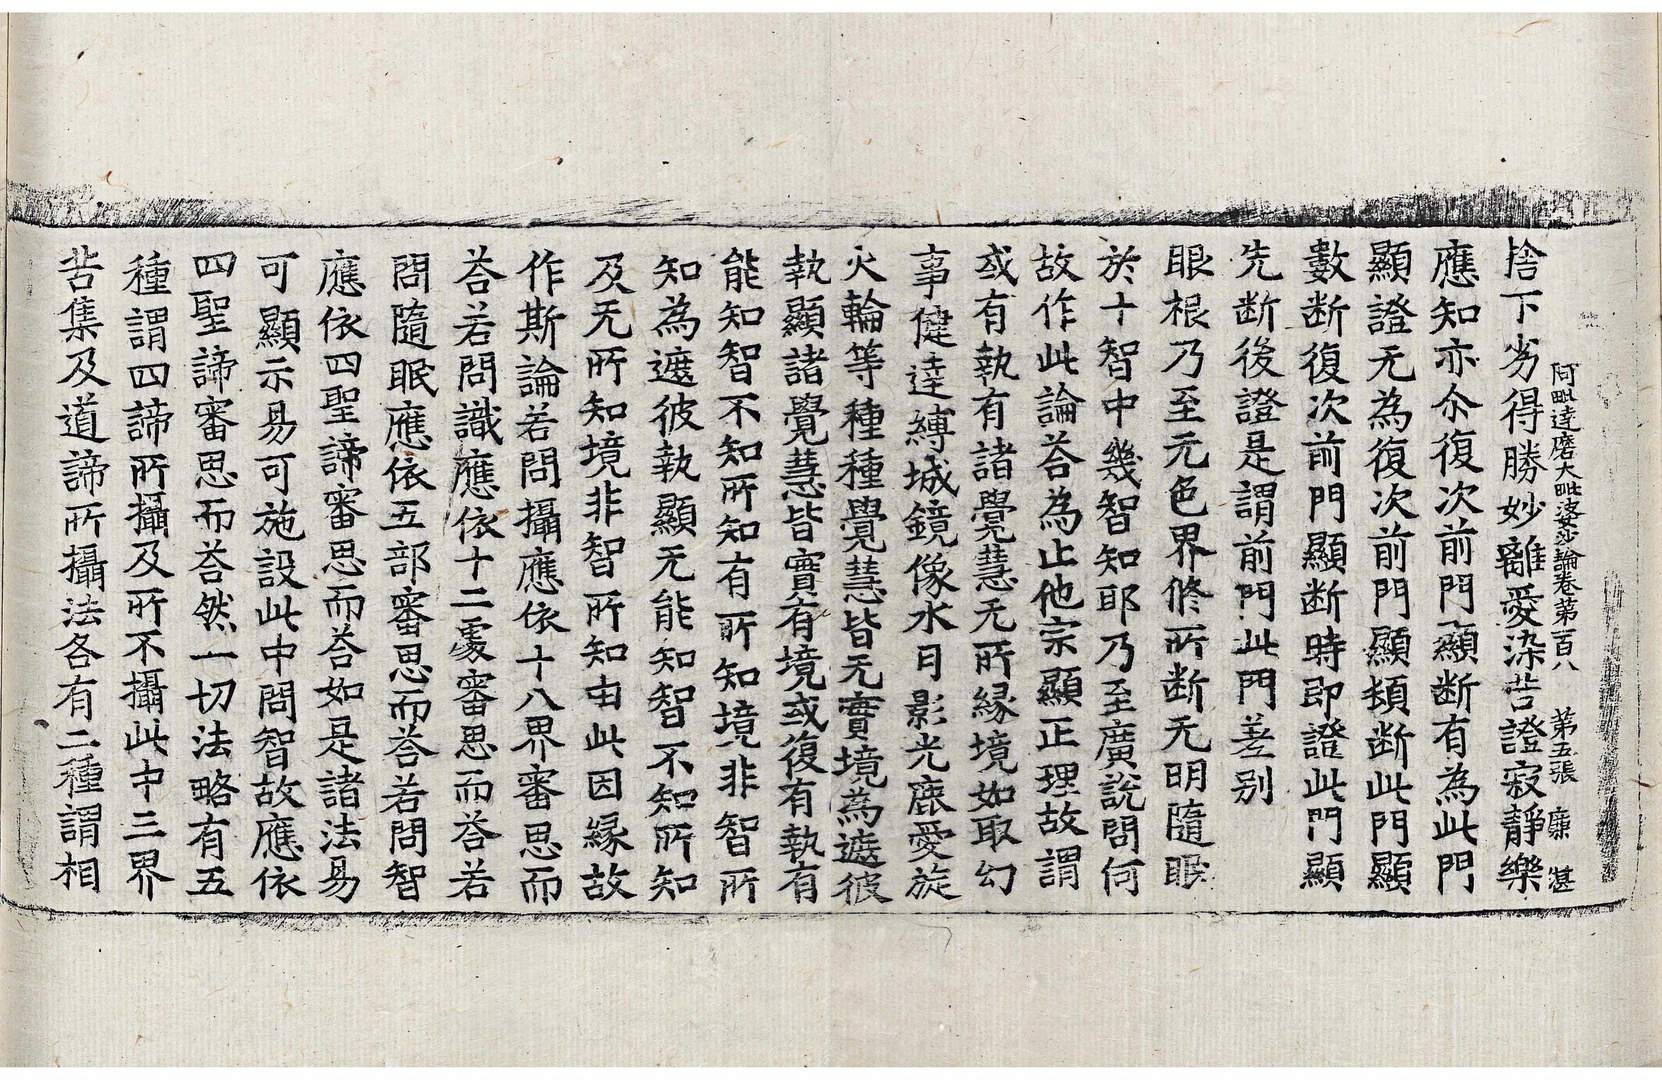 阿毗達磨大毗婆沙論卷第百八　第五張　廉　湛
捨下劣得勝妙離愛染苦證寂靜樂
應知亦尒復次前門顯断有為此門
顯證无為復次前門顯頓断此門顯
數断復次前門顯断時即證此門顯
先断後證是謂前門此門差別
眼根乃至无色界修所断无明隨眠
於十智中幾智知耶乃至廣說問何
故作此論荅為止他宗顯正理故謂
或有執有諸覺慧无所緣境如取幻
事健達縛城鏡像水月影光鹿愛旋
火輪等種種覺慧皆无實境為遮彼
執顯諸覺慧皆實有境或復有執有
能知智不知所知有所知境非智所
知為遮彼執顯无能知智不知所知
及无所知境非智所知由此因緣故
作斯論若問攝應依十八界審思而
荅若問識應依十二處審思而荅若
問隨眠應依五部審思而荅若問智
應依四聖諦審思而荅如是諸法易
可顯示易可施設此中問智故應依
四聖諦審思而荅然一切法略有五
種謂四諦所攝及所不攝此中三界
苦集及道諦所攝法各有二種謂相